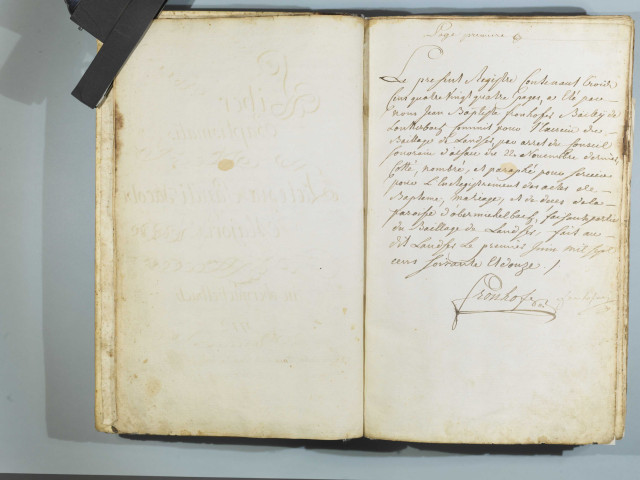 Page premiere
Le present Registre Contenant trois
Cens quatre vingt quatre pages, a eté par
nous Jean Baptiste fronhofer Bailly de
Lautterbach Commis pour l'Exercice du
Baillage de Landser par arret du Conseil
Souverain d'alsace du 22 Novembre dernier
Cotté, nombré, et paraphé pour servir
pour L'enregistrement des actes de
Baptême, mariage, et deces de la
paroisse d'obermichelbach, faisant partie
du Baillage de Landser, fait au
dit Landser Le premier Juin mil sept
cens soixante et douze /
fronhofer
Liber
Baptismalis